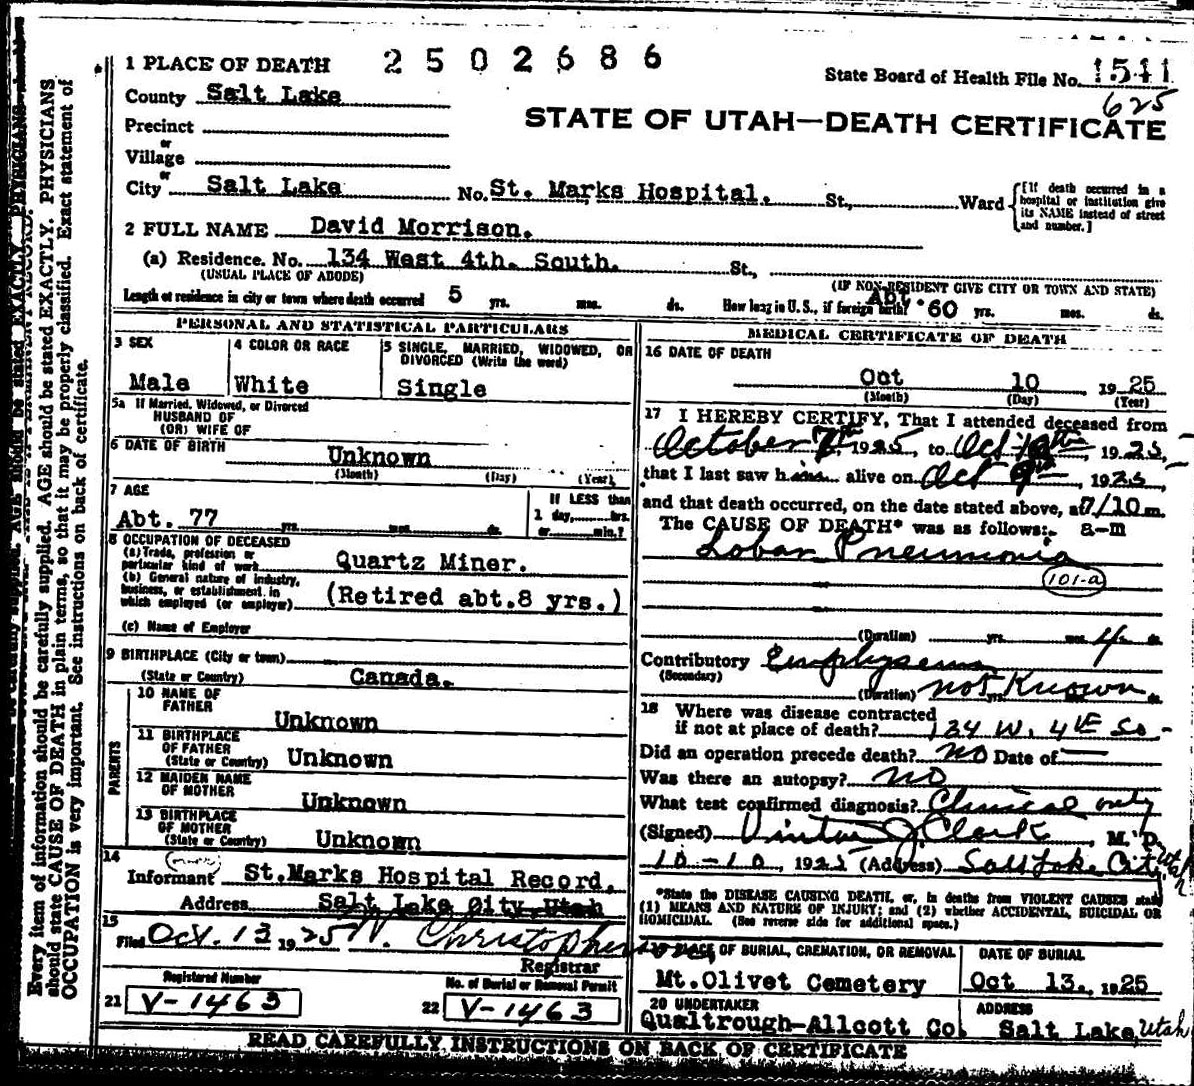 1 PLACE OF DEATH 2502686
State Board of Health File No. 1541
625
County Salt Lake
STATE OF UTAH—DEATH CERTIFICATE
Precinct
or
Village
or
City Salt Lake No. St. Marks Hospital. St., Ward
[If death occurred in a hospital or institution give its NAME instead of street and number.]
2 FULL NAME David Morrison.
(a) Residence. No. 134 West 4th. South. St.,
(USUAL PLACE OF ABODE) (IF NON-RESIDENT GIVE CITY OR TOWN AND STATE)
Length of residence in city or town where death occurred 5 yrs. mos. ds. How long in U.S., if foreign birth? Abt. 60 yrs. mos. ds.
PERSONAL AND STATISTICAL PARTICULARS
3 SEX
Male
4 COLOR OR RACE
White
5 SINGLE, MARRIED, WIDOWED, OR DIVORCED (Write the word)
Single
5a If Married, Widowed, or Divorced
HUSBAND OF
(OR) WIFE OF
6 DATE OF BIRTH Unknown
(Month) (Day) (Year)
7 AGE
Abt. 77 yrs. mos. ds.
If LESS than
1 day, hrs.
or min.?
8 OCCUPATION OF DECEASED
(a) Trade, profession or
particular kind of work Quartz Miner.
(b) General nature of industry,
business, or establishment in
which employed (or employer) (Retired abt.8 yrs.)
(c) Name of Employer
9 BIRTHPLACE (City or town)
(State or Country) Canada.
PARENTS
10 NAME OF
FATHER Unknown
11 BIRTHPLACE
OF FATHER
(State or Country) Unknown
12 MAIDEN NAME
OF MOTHER Unknown
13 BIRTHPLACE
OF MOTHER
(State or Country) Unknown
14
Informant St.Marks Hospital Record,
Address Salt Lake City, Utah
15
Filed Oct. 13 1925 W. Christopherson
Registrar
Registered Number
21 V-1463
No. of Burial or Removal Permit
22 V-1463
MEDICAL CERTIFICATE OF DEATH
16 DATE OF DEATH
Oct 10 1925
(Month) (Day) (Year)
17 I HEREBY CERTIFY, That I attended deceased from
October 7th 1925, to Oct 10th 1925,
that I last saw him alive on Oct 9th, 1925,
and that death occurred, on the date stated above, at 7/10 m.
The CAUSE OF DEATH* was as follows: a-m
Lobar Pneumonia
101-a
(Duration) yrs. mos. 4 ds.
Contributory Emphysema
(Secondary)
(Duration) not Known ds.
18 Where was disease contracted
if not at place of death? 134 W. 4th So-
Did an operation precede death? no Date of —
Was there an autopsy? no
What test confirmed diagnosis? Clinical only
(Signed) Vinton J Clark, M. D.
10-10, 1925 (Address) Salt Lake City Utah
*State the DISEASE CAUSING DEATH, or, in deaths from VIOLENT CAUSES state
(1) MEANS AND NATURE OF INJURY; and (2) whether ACCIDENTAL, SUICIDAL OR
HOMICIDAL. (See reverse side for additional space.)
PLACE OF BURIAL, CREMATION, OR REMOVAL
Mt.Olivet Cemetery
DATE OF BURIAL
Oct 13. 1925
20 UNDERTAKER
Qualtrough-Allcott Co.
ADDRESS
Salt Lake, Utah
READ CAREFULLY INSTRUCTIONS ON BACK OF CERTIFICATE
Every item of information should be carefully supplied. AGE should be stated EXACTLY. PHYSICIANS
should state CAUSE OF DEATH in plain terms, so that it may be properly classified. Exact statement of
OCCUPATION is very important. See instructions on back of certificate.